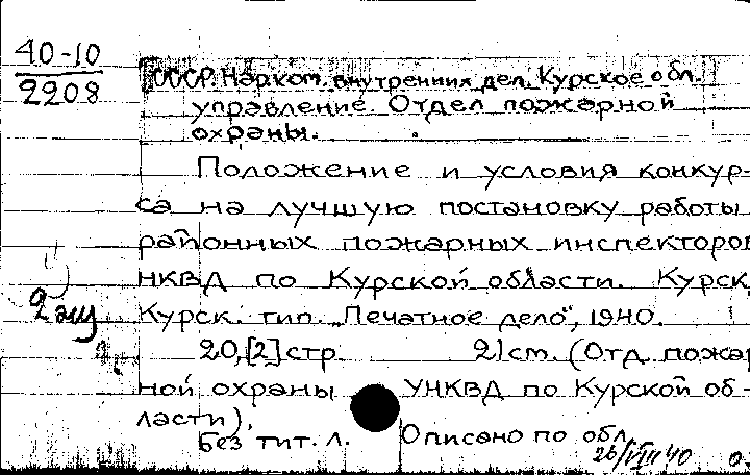 40-10
2208
СССР. Наркот. внутренних дел. Курское обл.
управление. Отдел пожарной
охраны.
Положение и условия конкур-
са на лучшую постановку работы
районных пожарных инспекторов
НКВД по Курской области. Курск,
Курск. тип. „Печатное дело", 1940.
20,[2] стр. 21 см. (Отд. пожар
ной охраны УНКВД по Курской об-
ласти).
Без тит. л. Описано по обл.
26/VIII 40